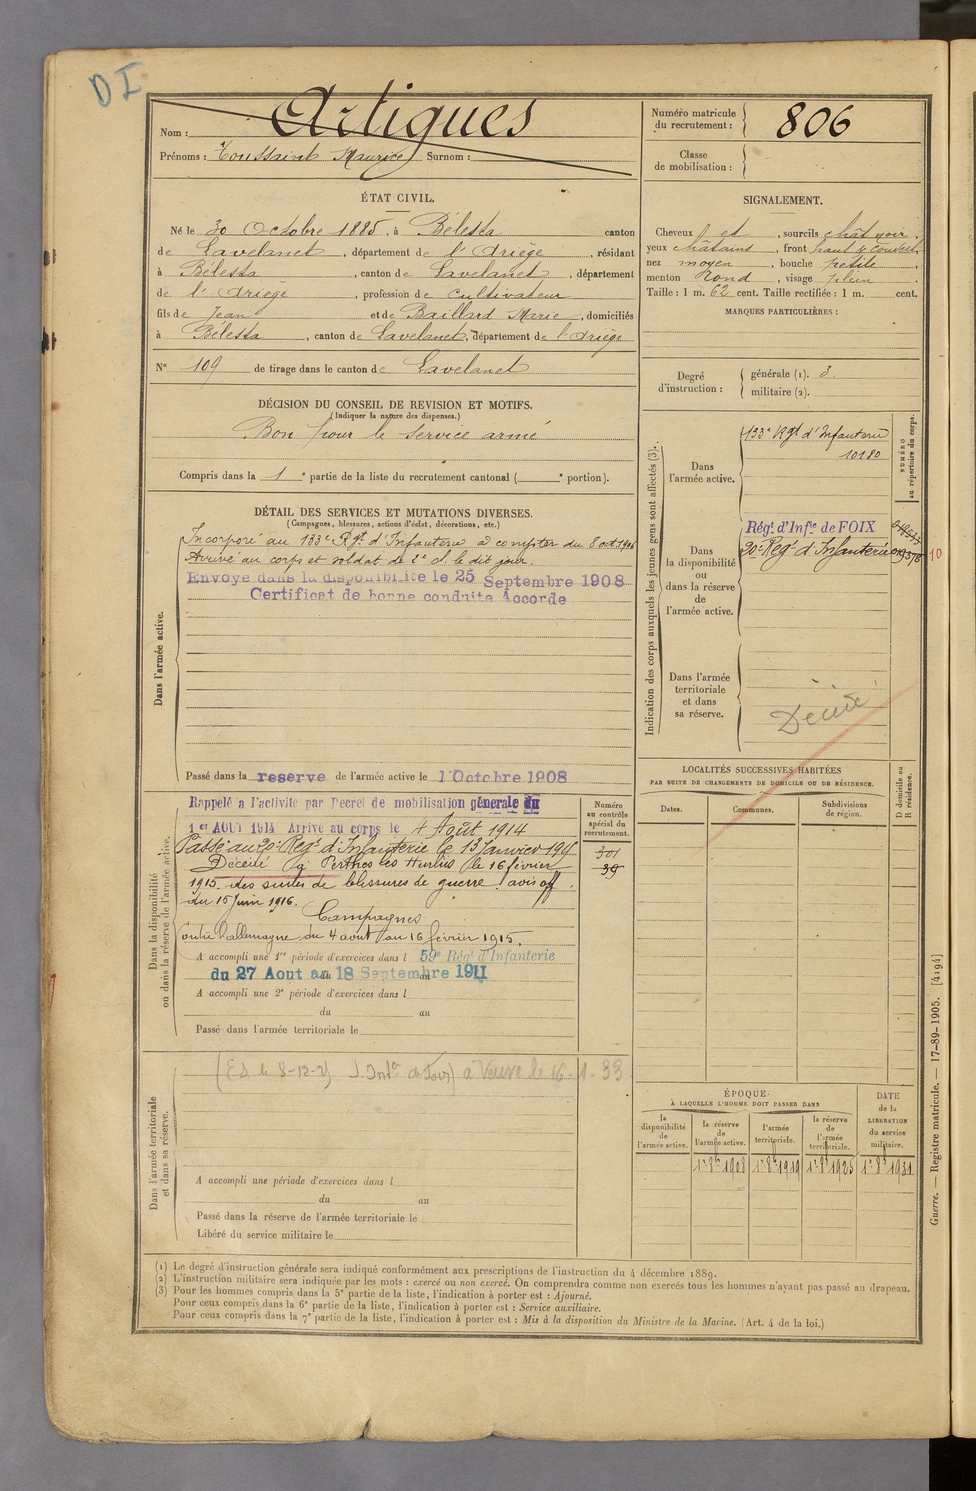 DI
Nom : Artigues
Prénoms : Toussaint Maurice Surnom :
Numéro matricule du recrutement : 806
Classe de mobilisation :
ÉTAT CIVIL.
Né le 30 Octobre 1885, à Bélesta canton
de Lavelanet, département de l'Ariège, résidant
à Bélesta, canton de Lavelanet, département
de l'Ariège, profession de Cultivateur
fils de Jean et de Baillard Marie, domiciliés
à Bélesta, canton de Lavelanet, département de l'Ariège
N° 109 de tirage dans le canton de Lavelanet
SIGNALEMENT.
Cheveux et, sourcils chât noir,
yeux châtains, front haut & couvert,
nez moyen, bouche petite,
menton Rond, visage plein.
Taille : 1 m. 62 cent. Taille rectifiée : 1 m. cent.
MARQUES PARTICULIÈRES :
Degré d'instruction : générale (1). 3
militaire (2).
DÉCISION DU CONSEIL DE REVISION ET MOTIFS.
(Indiquer la nature des dispenses.)
Bon pour le service armé
Compris dans la 1e partie de la liste du recrutement cantonal ( e portion).
DÉTAIL DES SERVICES ET MUTATIONS DIVERSES.
(Campagnes, blessures, actions d'éclat, décorations, etc.)
Dans l'armée active.
Incorporé au 133e Rgt d'Infanterie à compter du 8 oct 1906
Arrivé au corps et soldat de 2e cl. le dit jour.
Envoyé dans la disponibilité le 25 Septembre 1908
Certificat de bonne conduite Accordé
Passé dans la reserve de l'armée active le 1 Octobre 1908
Indication des corps auxquels les jeunes gens sont affectés (3).
NUMÉRO au répertoire du corps.
Dans l'armée active.
133e Rgt d'Infanterie
10180
Dans la disponibilité ou dans la réserve de l'armée active.
Régt d'Infie de FOIX
20e Regt d'Infanterie
10
Dans l'armée territoriale et dans sa réserve.
Décédé
LOCALITÉS SUCCESSIVES HABITÉES
PAR SUITE DE CHANGEMENTS DE DOMICILE OU DE RÉSIDENCE.
Dates. Communes. Subdivisions de région. D domicile ou R résidence.
Dans la disponibilité ou dans la réserve de l'armée active.
Numéro au contrôle spécial du recrutement.
301
39
Rappelé a l'activité par Decret de mobilisation générale du
1er AOUT 1914 Arrivé au corps le 4 Août 1914
Passé au 20e Regt d'Infanterie le 13 Janvier 1915
Décédé à Perthes les Hurlus le 16 février
1915 des suites de blessures de guerre avis off
du 15 Juin 1916.
Campagnes
Contre l'allemagne du 4 aout au 16 février 1915.
A accompli une 1re période d'exercices dans l 59e Régt d'Infanterie
du 27 Aout au 18 Septembre 1911
A accompli une 2e période d'exercices dans l
du au
Passé dans l'armée territoriale le
Dans l'armée territoriale et dans sa réserve.
à Vevre le 16-1-33
A accompli une période d'exercices dans l
du au
Passé dans la réserve de l'armée territoriale le
Libéré du service militaire le
ÉPOQUE
À LAQUELLE L'HOMME DOIT PASSER DANS
la disponibilité de l'armée active. la réserve de l'armée active. l'armée territoriale. la réserve de l'armée territoriale. DATE de la LIBÉRATION du service militaire.
1er 8bre 1908 1er 8bre 1919 1er 8bre 1925 1er 8bre 1931
(1) Le degré d'instruction générale sera indiqué conformément aux prescriptions de l'instruction du 4 décembre 1889.
(2) L'instruction militaire sera indiquée par les mots : exercé ou non exercé. On comprendra comme non exercés tous les hommes n'ayant pas passé au drapeau.
(3) Pour les hommes compris dans la 5e partie de la liste, l'indication à porter est : Ajourné.
Pour ceux compris dans la 6e partie de la liste, l'indication à porter est : Service auxiliaire.
Pour ceux compris dans la 7e partie de la liste, l'indication à porter est : Mis à la disposition du Ministre de la Marine. (Art. 4 de la loi.)
Guerre. — Registre matricule. — 17-89-1905. [4194]